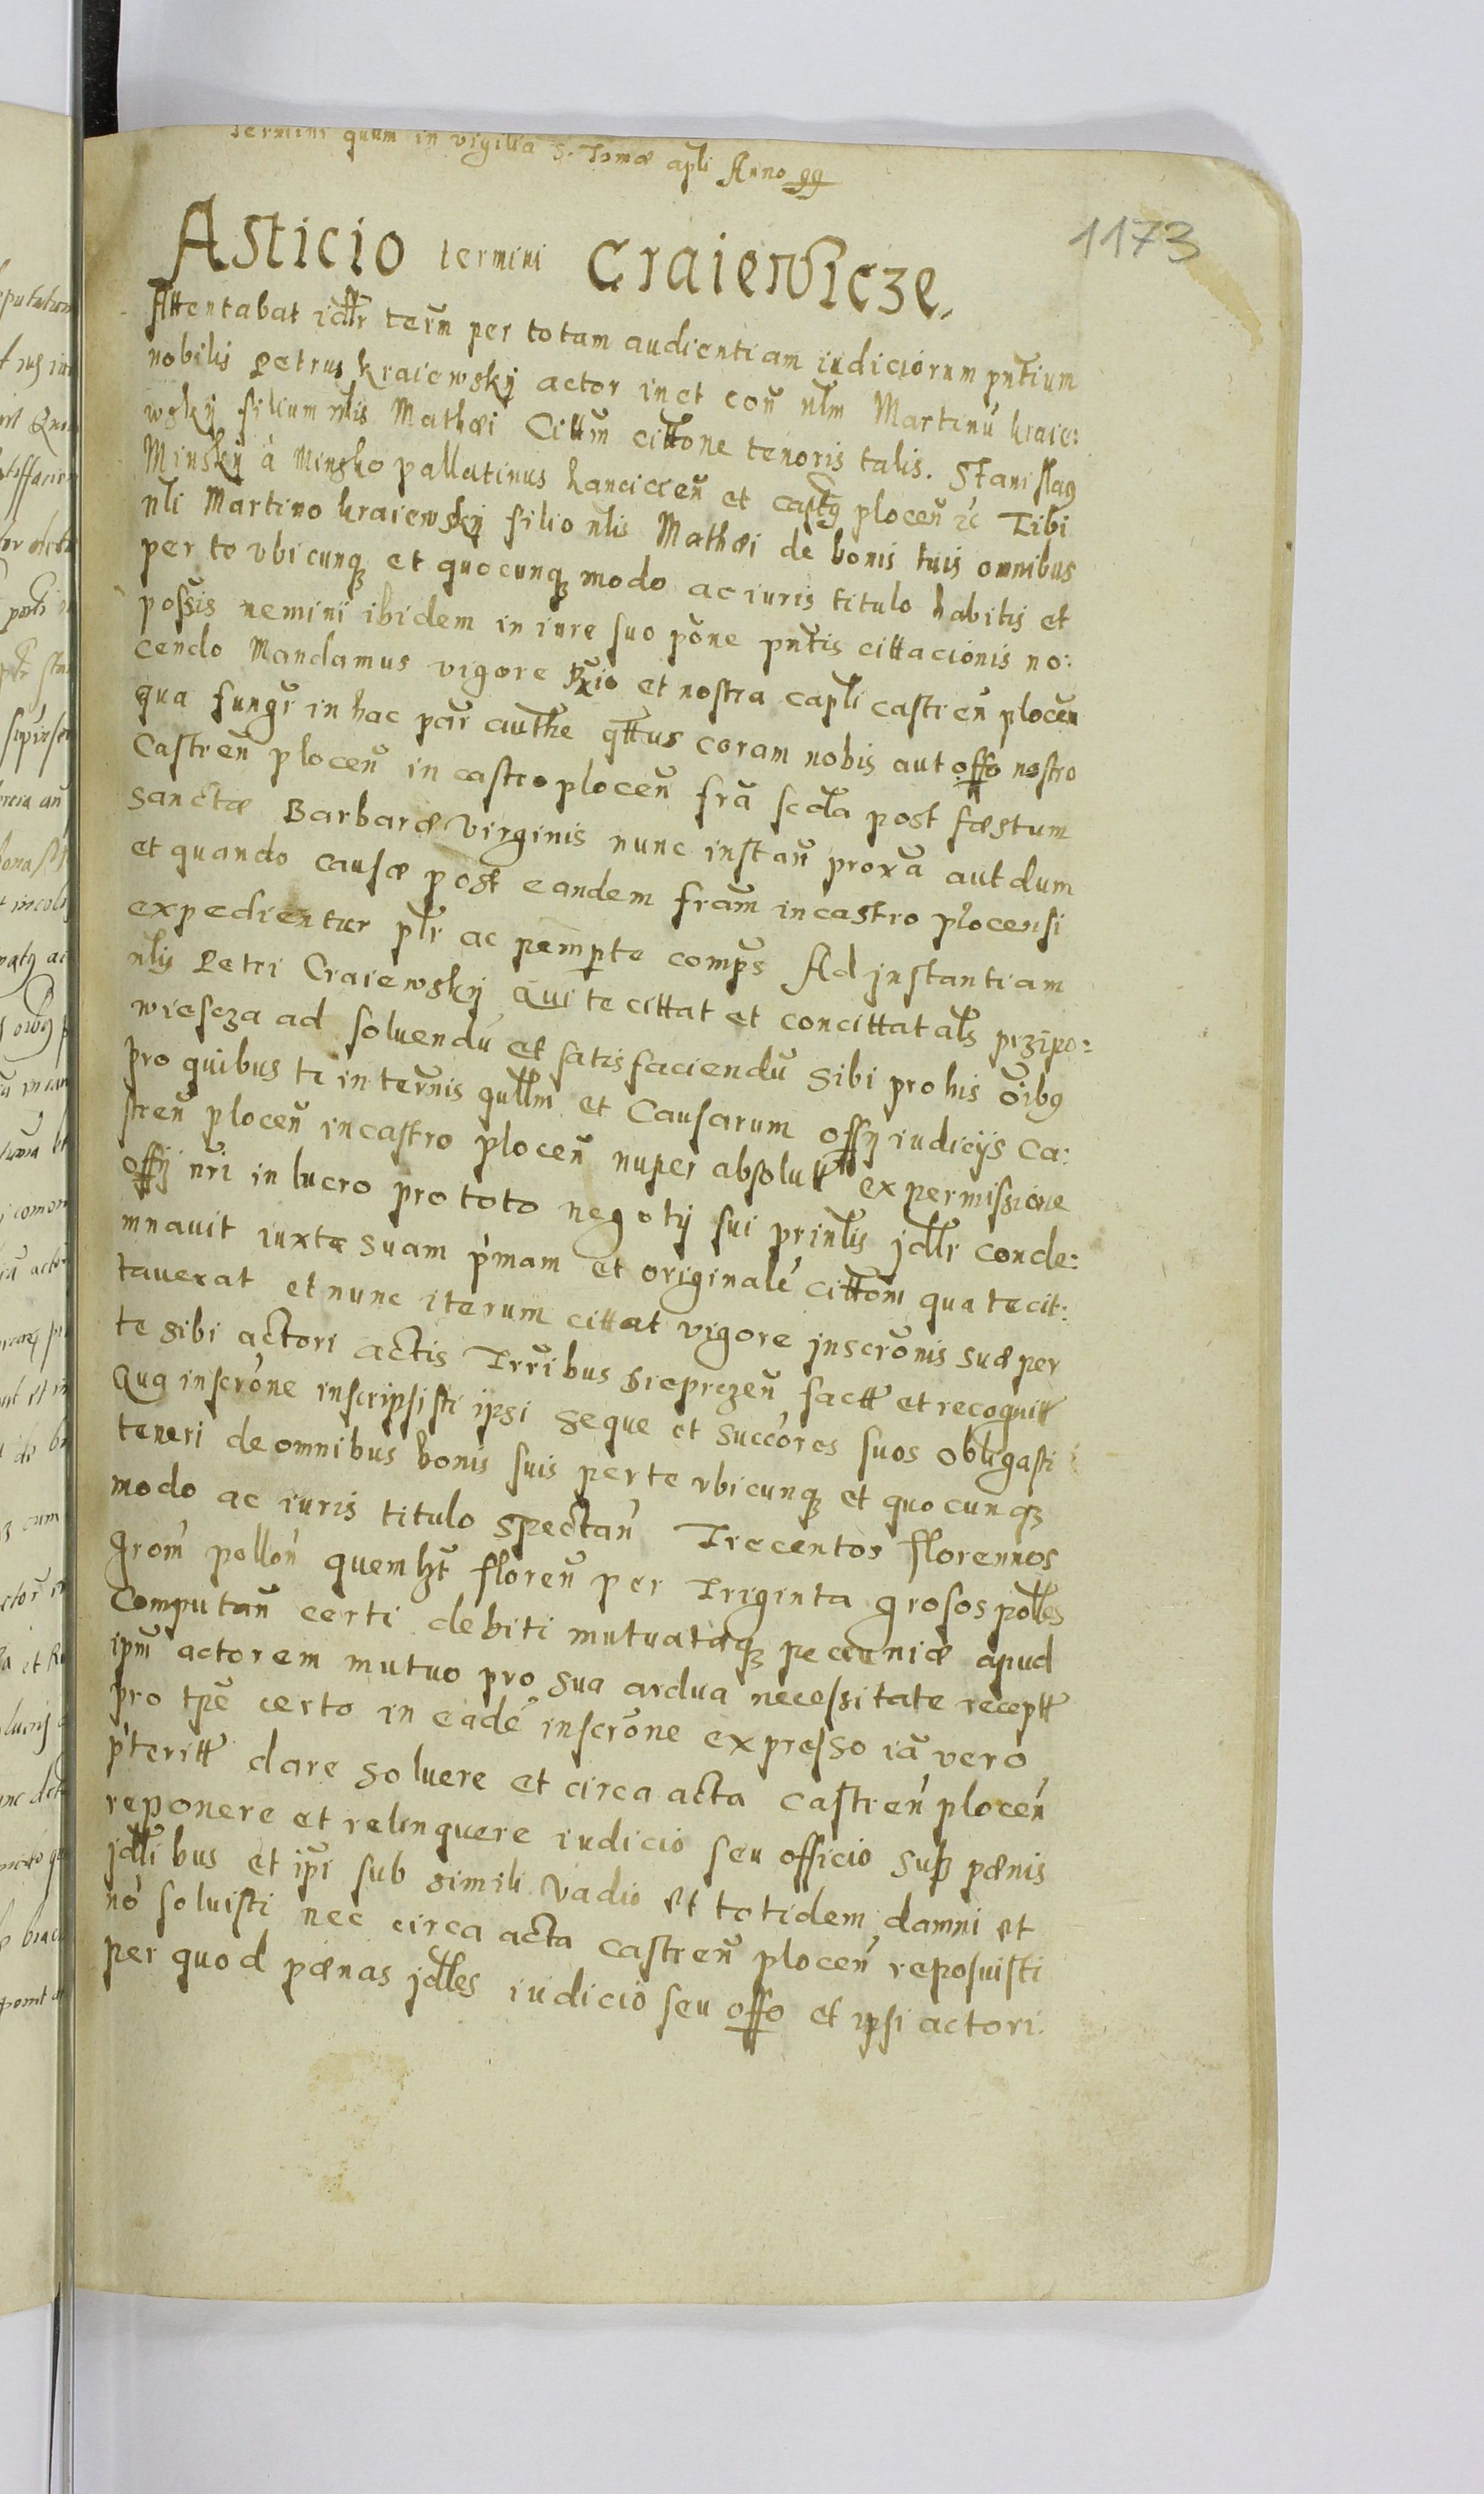 Termini quum in vigilia S. Tomæ apli Anno 99
1173
Asticio termini Craiewicze.
Attentabat idllr term̄ per totam audientiam iudiciorum pn̄tium
nobilis Petrus Kraiewskÿ actor in et con̄ nlm Martinū Kraie:
wskÿ filium nlis Mathæi Cittm̄ cittone tenoris talis. Stanislaꝰ
Minskÿ à Minsko pallatinus Lancicien̄ et captꝰ plocen̄ ꝛc Tibi
nli Martino Kraiewskÿ filio nlis Mathæi de bonis tuis omnibus
per te vbicunqꝫ et quocunqꝫ modo ac iuris titulo habitis et
possis nemini ibidem in iure suo pōne pn̄tis cittacionis no:
cendo Mandamus vigore Rxio et nostra capli castren̄ plocen
qua fungr̄ in hac par̄ authe qttus coram nobis aut offo nostro
Castren̄ plocen̄ in castro plocen̄ frā scda post fæstum
sanctæ Barbaræ Virginis nunc instan̄ proxā aut dum
et quando causæ post eandem fram̄ in castro plocensi
expedientur plr ac pempte comps Ad instantiam
nlis Petri Craiewskÿ Qui te cittat et concittat als przipo:
wiescza ad soluendū et satisfaciendū Sibi pro his ōibꝰ
pro quibus te in ternis qllm̄ et Causarum offÿ iudicÿs Ca:
stren̄ plocen̄ in castro plocen̄ nuper absolutt ex permissione
offÿ nr̄i in lucro pro toto negotÿ sui prinlis jdllr conde:
mnauit iuxta suam pŕmam et originalé cittom̄ qua te cit:
tauerat et nunc iterum cittat vigore jnscrōnis suæ per
te sibi actori actis Trr̄ibus Sieprczen̄ factt et recognitt
Qua inscrōne inscripsisti ipsi seque et succōres suos obligasti
teneri de omnibus bonis suis per te vbicunqꝫ et quocunqꝫ
modo ac iuris titulo spectan̄ Trecentos florennos
grom̄ pollon̄ quemlzt floren̄ per Triginta grosos polles
Computan̄ certi debiti mutuatæqꝫ pecuniæ apud
ipm̄ actorem mutuo pro sua ardua necessitate receptt
pro tpē certo in eadē inscrōne expresso iā vero
pŕteritt dare soluere et circa acta castren̄ plocen̄
reponere et relinquere iudicio seu officio sub pænis
jdllibus et ipi sub simili vadio et totidem damni et
nō soluisti nec circa acta castren̄ plocen̄ reposuisti
per quod pænas jdlles iudicio seu offo et ipsi actori.